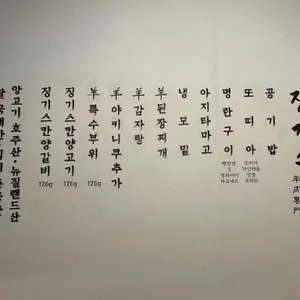 공기밥
또띠아
명란구이
아지타마고
냉모밀
羊된장찌개
羊감자탕
羊야키니쿠추가
羊특수부위
126g
징기스칸양고기
126g
징기스칸양갈비
126g
양고기 호주산·뉴질랜드산